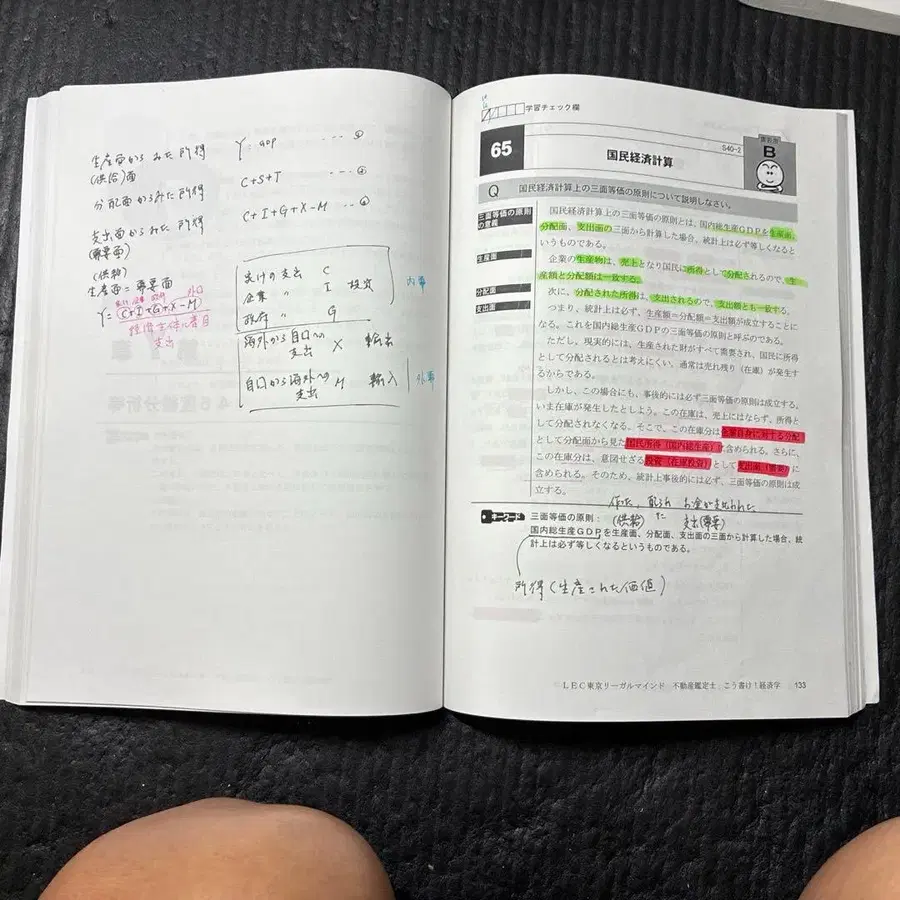 生産面からみた所得
(供給)面
Y:GDP ‥‥ ①
分配面からみた所得
C+S+T ‥‥ ②
支出面からみた所得
(需要面)
C+I+G+X-M ‥‥
(供給)
生産面=需要面
外口
Y=C+I+G+X-M
支出
支出 C
企業 〃 I 投資
政府 〃 G
内需
海外から自口への
支出 X 輸出
自口から海外への
支出 M 輸入
外需
学習チェック欄
65
国民経済計算
S40-2
重要度
B
Q 国民経済計算上の三面等価の原則について説明しなさい。
三面等価の原則
の意義
国民経済計算上の三面等価の原則とは、国内総生産GDPを生産面、
分配面、支出面の三面から計算した場合、統計上は必ず等しくなると
いうものである。
生産面
企業の生産物は、売上となり国民に所得として分配されるので、生
産額と分配額は一致する。
分配面
次に、分配された所得は、支出されるので、支出額とも一致する。
支出面
つまり、統計上は必ず、生産額=分配額=支出額が成立することに
なる。これを国内総生産GDPの三面等価の原則と呼ぶのである。
ただし、現実的には、生産された財がすべて需要され、国民に所得
として分配されるとは考えにくい。通常は売れ残り(在庫)が発生す
るからである。
しかし、この場合にも、事後的には必ず三面等価の原則は成立する。
いま在庫が発生したとしよう。この在庫は、売上にはならず、所得と
して分配されなくなる。そこで、この在庫分は企業自身に対する分配
として分配面から見た国民所得(国内総生産)に含められる。さらに、
この在庫分は、意図せざる投資(在庫投資)として支出面(需要)に
含められる。そのため、統計上事後的には必ず、三面等価の原則は成
立する。
お金が支出された
キーワード
三面等価の原則:
(供給) 支出(需要)
国内総生産GDPを生産面、分配面、支出面の三面から計算した場合、統
計上は必ず等しくなるというものである。
所得(生産された価値)
LEC東京リーガルマインド 不動産鑑定士 こう書け!経済学 133